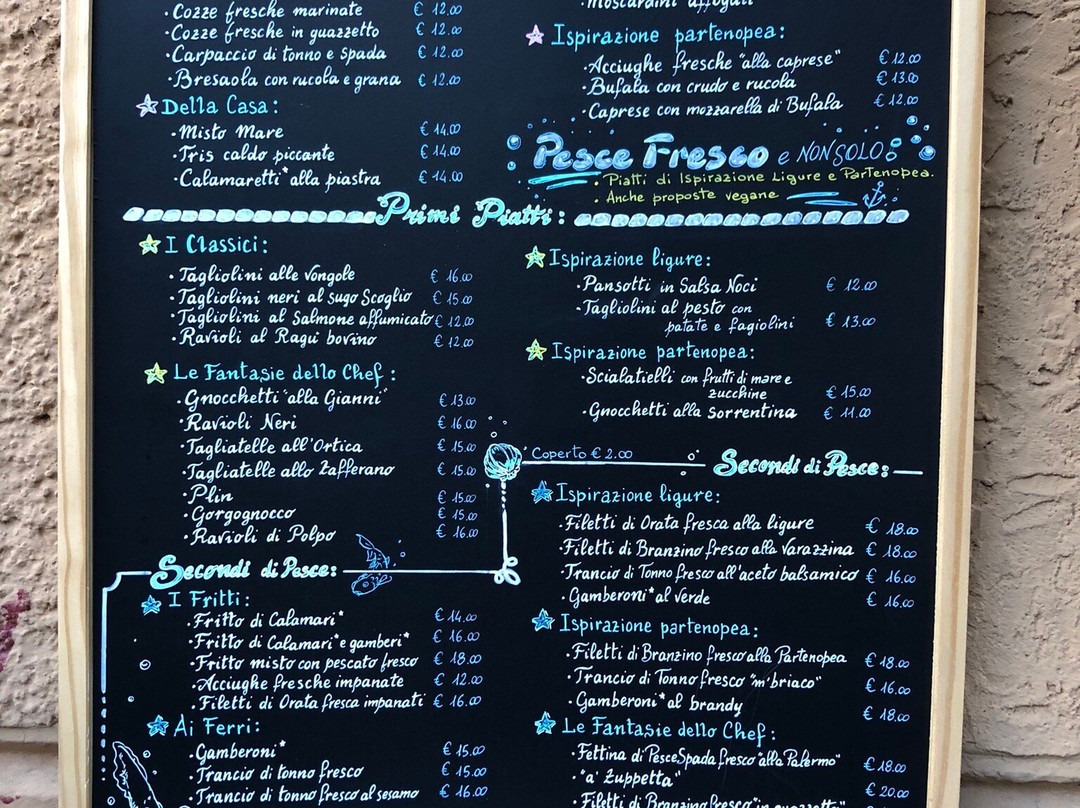 • Cozze fresche marinate € 12.00
• Cozze fresche in guazzetto € 12.00
• Carpaccio di tonno e spada € 12.00
• Bresaola con rucola e grana € 12.00
Della Casa:
• Misto Mare € 14.00
• Tris caldo piccante € 14.00
• Calamaretti* alla piastra € 14.00
• Moscardini affogati
Ispirazione partenopea:
• Acciughe fresche "alla caprese" € 12.00
• Bufala con crudo e rucola € 13.00
• Caprese con mozzarella di Bufala € 12.00
Pesce Fresco e NON SOLO
• Piatti di Ispirazione Ligure e Partenopea.
• Anche proposte vegane
Primi Piatti:
I Classici:
• Tagliolini alle Vongole € 16.00
• Tagliolini neri al sugo Scoglio € 15.00
• Tagliolini al Salmone affumicato € 12.00
• Ravioli al Ragu' bovino € 12.00
Le Fantasie dello Chef:
• Gnocchetti "alla Gianni" € 13.00
• Ravioli Neri € 16.00
• Tagliatelle all'Ortica € 15.00
• Tagliatelle allo Zafferano € 15.00
• Plin € 15.00
• Gorgognocco € 15.00
• Ravioli di Polpo € 16.00
Ispirazione ligure:
• Pansotti in Salsa Noci € 12.00
• Tagliolini al pesto con
patate e fagiolini € 13.00
Ispirazione partenopea:
• Scialatielli con frutti di mare e
zucchine € 15.00
• Gnocchetti alla Sorrentina € 11.00
Coperto € 2.00
Secondi di Pesce:
I Fritti:
• Fritto di Calamari* € 14.00
• Fritto di Calamari* e gamberi* € 16.00
• Fritto misto con pescato fresco € 18.00
• Acciughe fresche impanate € 12.00
• Filetti di Orata fresca impanati € 16.00
Ai Ferri:
• Gamberoni* € 15.00
• Trancio di tonno fresco € 15.00
• Trancio di tonno fresco al sesamo € 16.00
Secondi di Pesce:
Ispirazione ligure:
• Filetti di Orata fresca alla ligure € 18.00
• Filetti di Branzino fresco alla Varazzina € 18.00
• Trancio di Tonno fresco all'aceto balsamico € 16.00
• Gamberoni* al verde € 16.00
Ispirazione partenopea:
• Filetti di Branzino fresco alla Partenopea € 18.00
• Trancio di Tonno fresco "m'briaco" € 16.00
• Gamberoni* al brandy € 18.00
Le Fantasie dello Chef:
• Fettina di Pesce Spada fresco "alla Palermo" € 18.00
• "a' Zuppetta" € 20.00
• Filetti di Branzino fresco "in guazzetto"